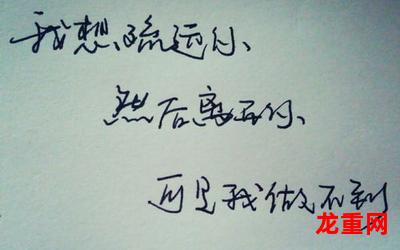 我想疏远你、
然后离开你、
可是我做不到
龙重网